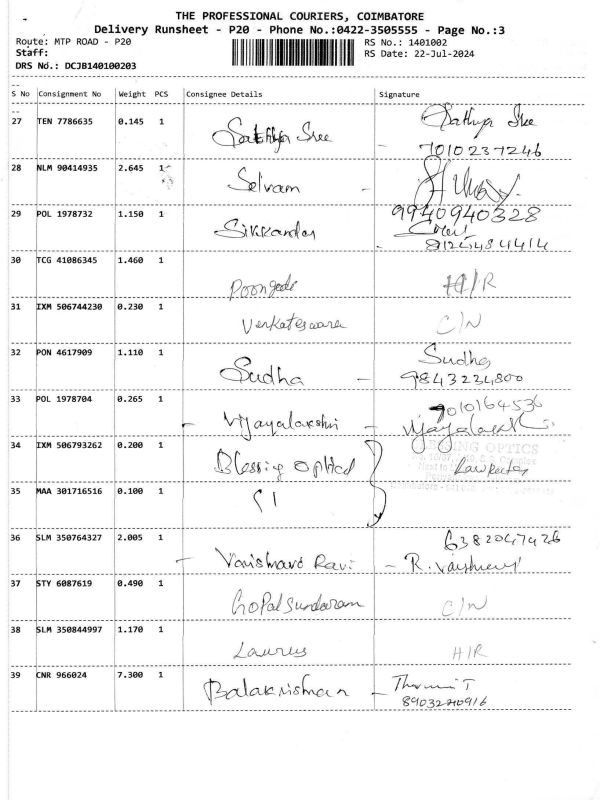 THE PROFESSIONAL COURIERS, COIMBATORE
Delivery Runsheet - P20 - Phone No.:0422-3505555 - Page No.:3
Route: MTP ROAD - P20
RS No.: 1401002
Staff:
RS Date: 22-Jul-2024
DRS No.: DCJB140100203
S No Consignment No Weight PCS Consignee Details Signature
27 TEN 7786635 0.145 1 Sathya Sree - Sathya Sree
7010237246
28 NLM 90414935 2.645 1 Selvam -
29 POL 1978732 1.150 1 Sikkandar - 9940940328
8125484414
30 TCG 41086345 1.460 1 H/R
31 IXM 506744230 0.230 1 Venkateswara C/N
32 PON 4617909 1.110 1 Sudha - Sudha
9843234800
33 POL 1978704 0.265 1 - Vijayalakshmi - 9010164536
34 IXM 506793262 0.200 1 Blessing Optical
OPTICS
35 MAA 301716516 0.100 1 "
36 SLM 350764327 2.005 1 - Ravi - 6382047426
37 STY 6087619 0.490 1 Gopal Sundaram C/N
38 SLM 350844997 1.170 1 Laurus H/R
39 CNR 966024 7.300 1 Balakrishnan -
8903240916